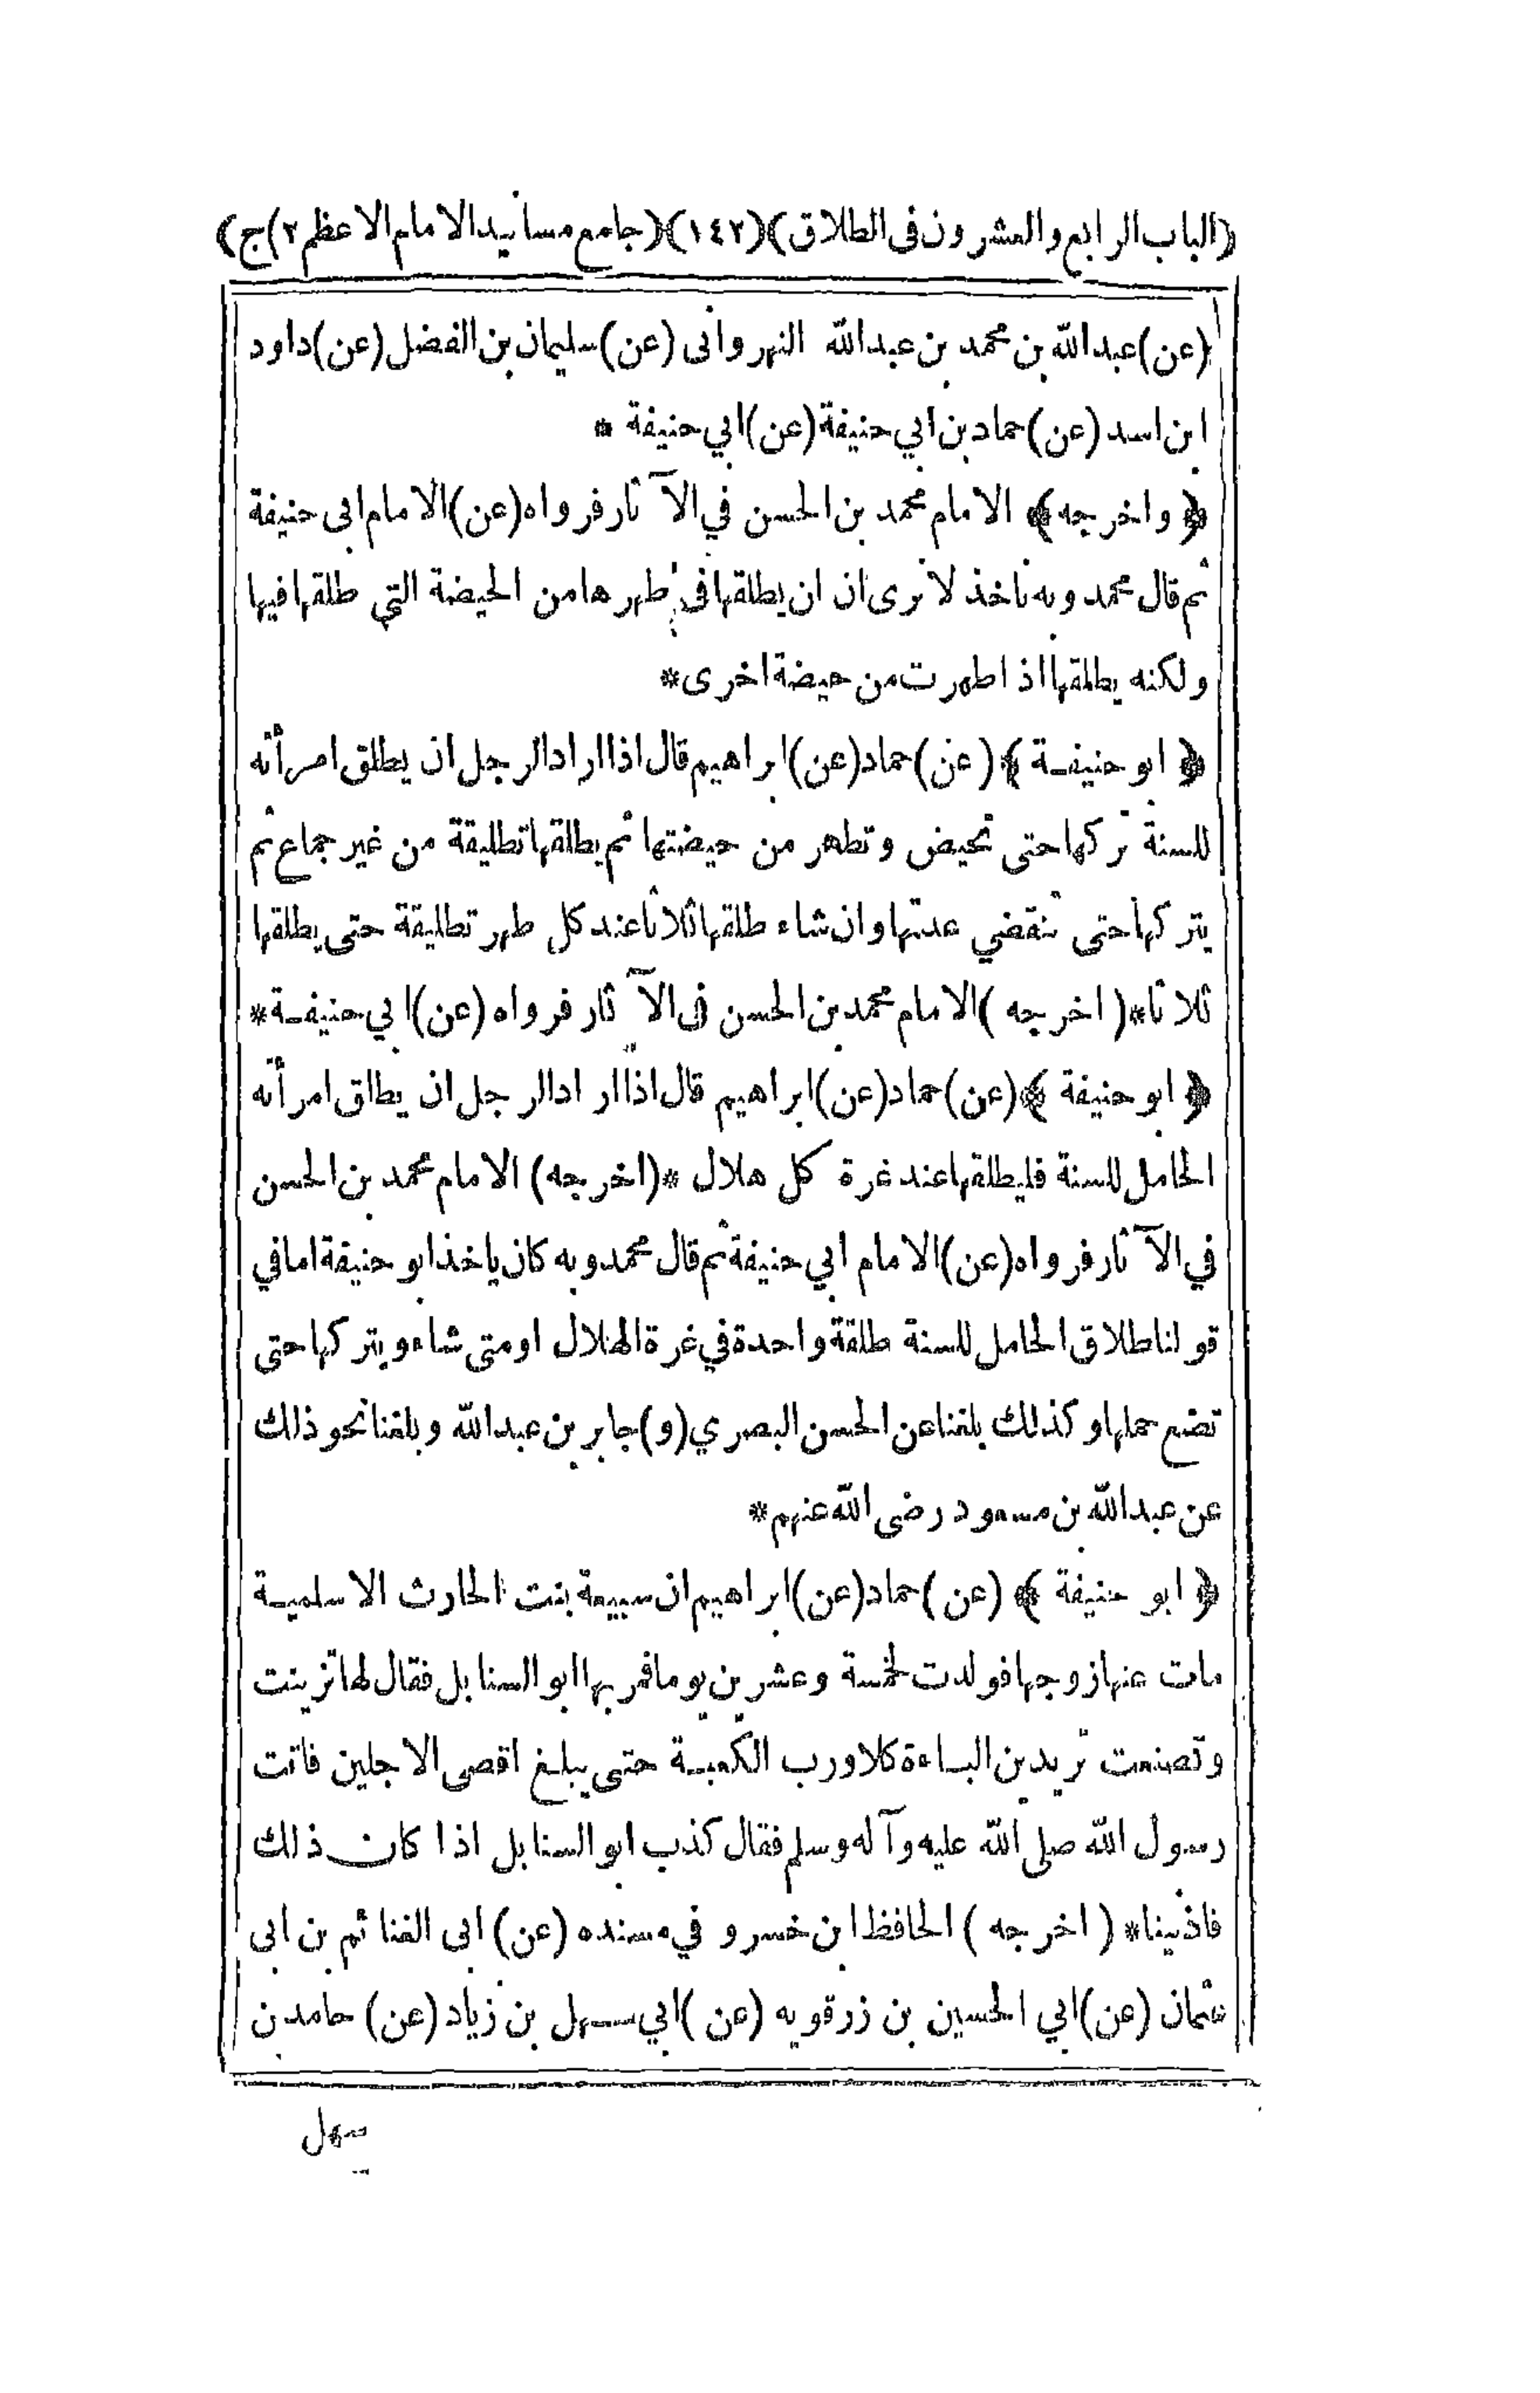 (الباب الرابع والعشرون فى الطلاق)(١٤٢)(جامع مسانيد الامام الاعظم ٢)ج)
(عن) عبدالله بن محمد بن عبدالله النهروانى (عن) سليمان بن الفضل (عن) داود
ابن اسد (عن) حماد بن ابي حنيفة (عن) ابي حنيفة *
﴿واخرجه﴾ الامام محمد بن الحسن في الآثار فرواه (عن) الامام ابى حنيفة
ثم قال محمد وبه ناخذ لا نرى ان ان يطلقها في طهرها من الحيضة التي طلقها فيها
ولكنه يطلقها اذا طهرت من حيضة اخرى *
﴿ابو حنيفة﴾ (عن) حماد (عن) ابراهيم قال اذا اراد الرجل ان يطلق امرأته
للسنة تركها حتى تحيض وتطهر من حيضتها ثم يطلقها تطليقة من غير جماع ثم
يتركها حتى تنقضي عدتها وان شاء طلقها ثلاثا عند كل طهر تطليقة حتى يطلقها
ثلاثا * (اخرجه) الامام محمد بن الحسن فى الآثار فرواه (عن) ابي حنيفة *
﴿ابو حنيفة﴾ (عن) حماد (عن) ابراهيم قال اذا اراد الرجل ان يطلق امرأته
الحامل للسنة فليطلقها عند غرة كل هلال * (اخرجه) الامام محمد بن الحسن
في الآثار فرواه (عن) الامام ابي حنيفة ثم قال محمد وبه كان ياخذ ابو حنيفة اما في
قولنا طلاق الحامل للسنة طلقة واحدة في غرة الهلال او متى شاء ويتركها حتى
تضع حملها وكذلك بلغنا عن الحسن البصري (و) جابر بن عبدالله وبلغنا نحو ذلك
عن عبدالله بن مسعود رضى الله عنهم *
﴿ابو حنيفة﴾ (عن) حماد (عن) ابراهيم ان سبيعة بنت الحارث الاسلمية
مات عنها زوجها فولدت لخمسة وعشرين يوما فمر بها ابو السنابل فقال لها تزينت
وتصنعت تريدين الباءة كلا ورب الكعبة حتى يبلغ اقصى الاجلين فاتت
رسول الله صلى الله عليه وآله وسلم فقال كذب ابو السنابل اذا كان ذلك
فاذنينا * (اخرجه) الحافظ ابن خسرو في مسنده (عن) ابى الغنائم بن ابى
عثمان (عن) ابي الحسين بن زرقويه (عن) ابي سهل بن زياد (عن) حامد بن
سهل